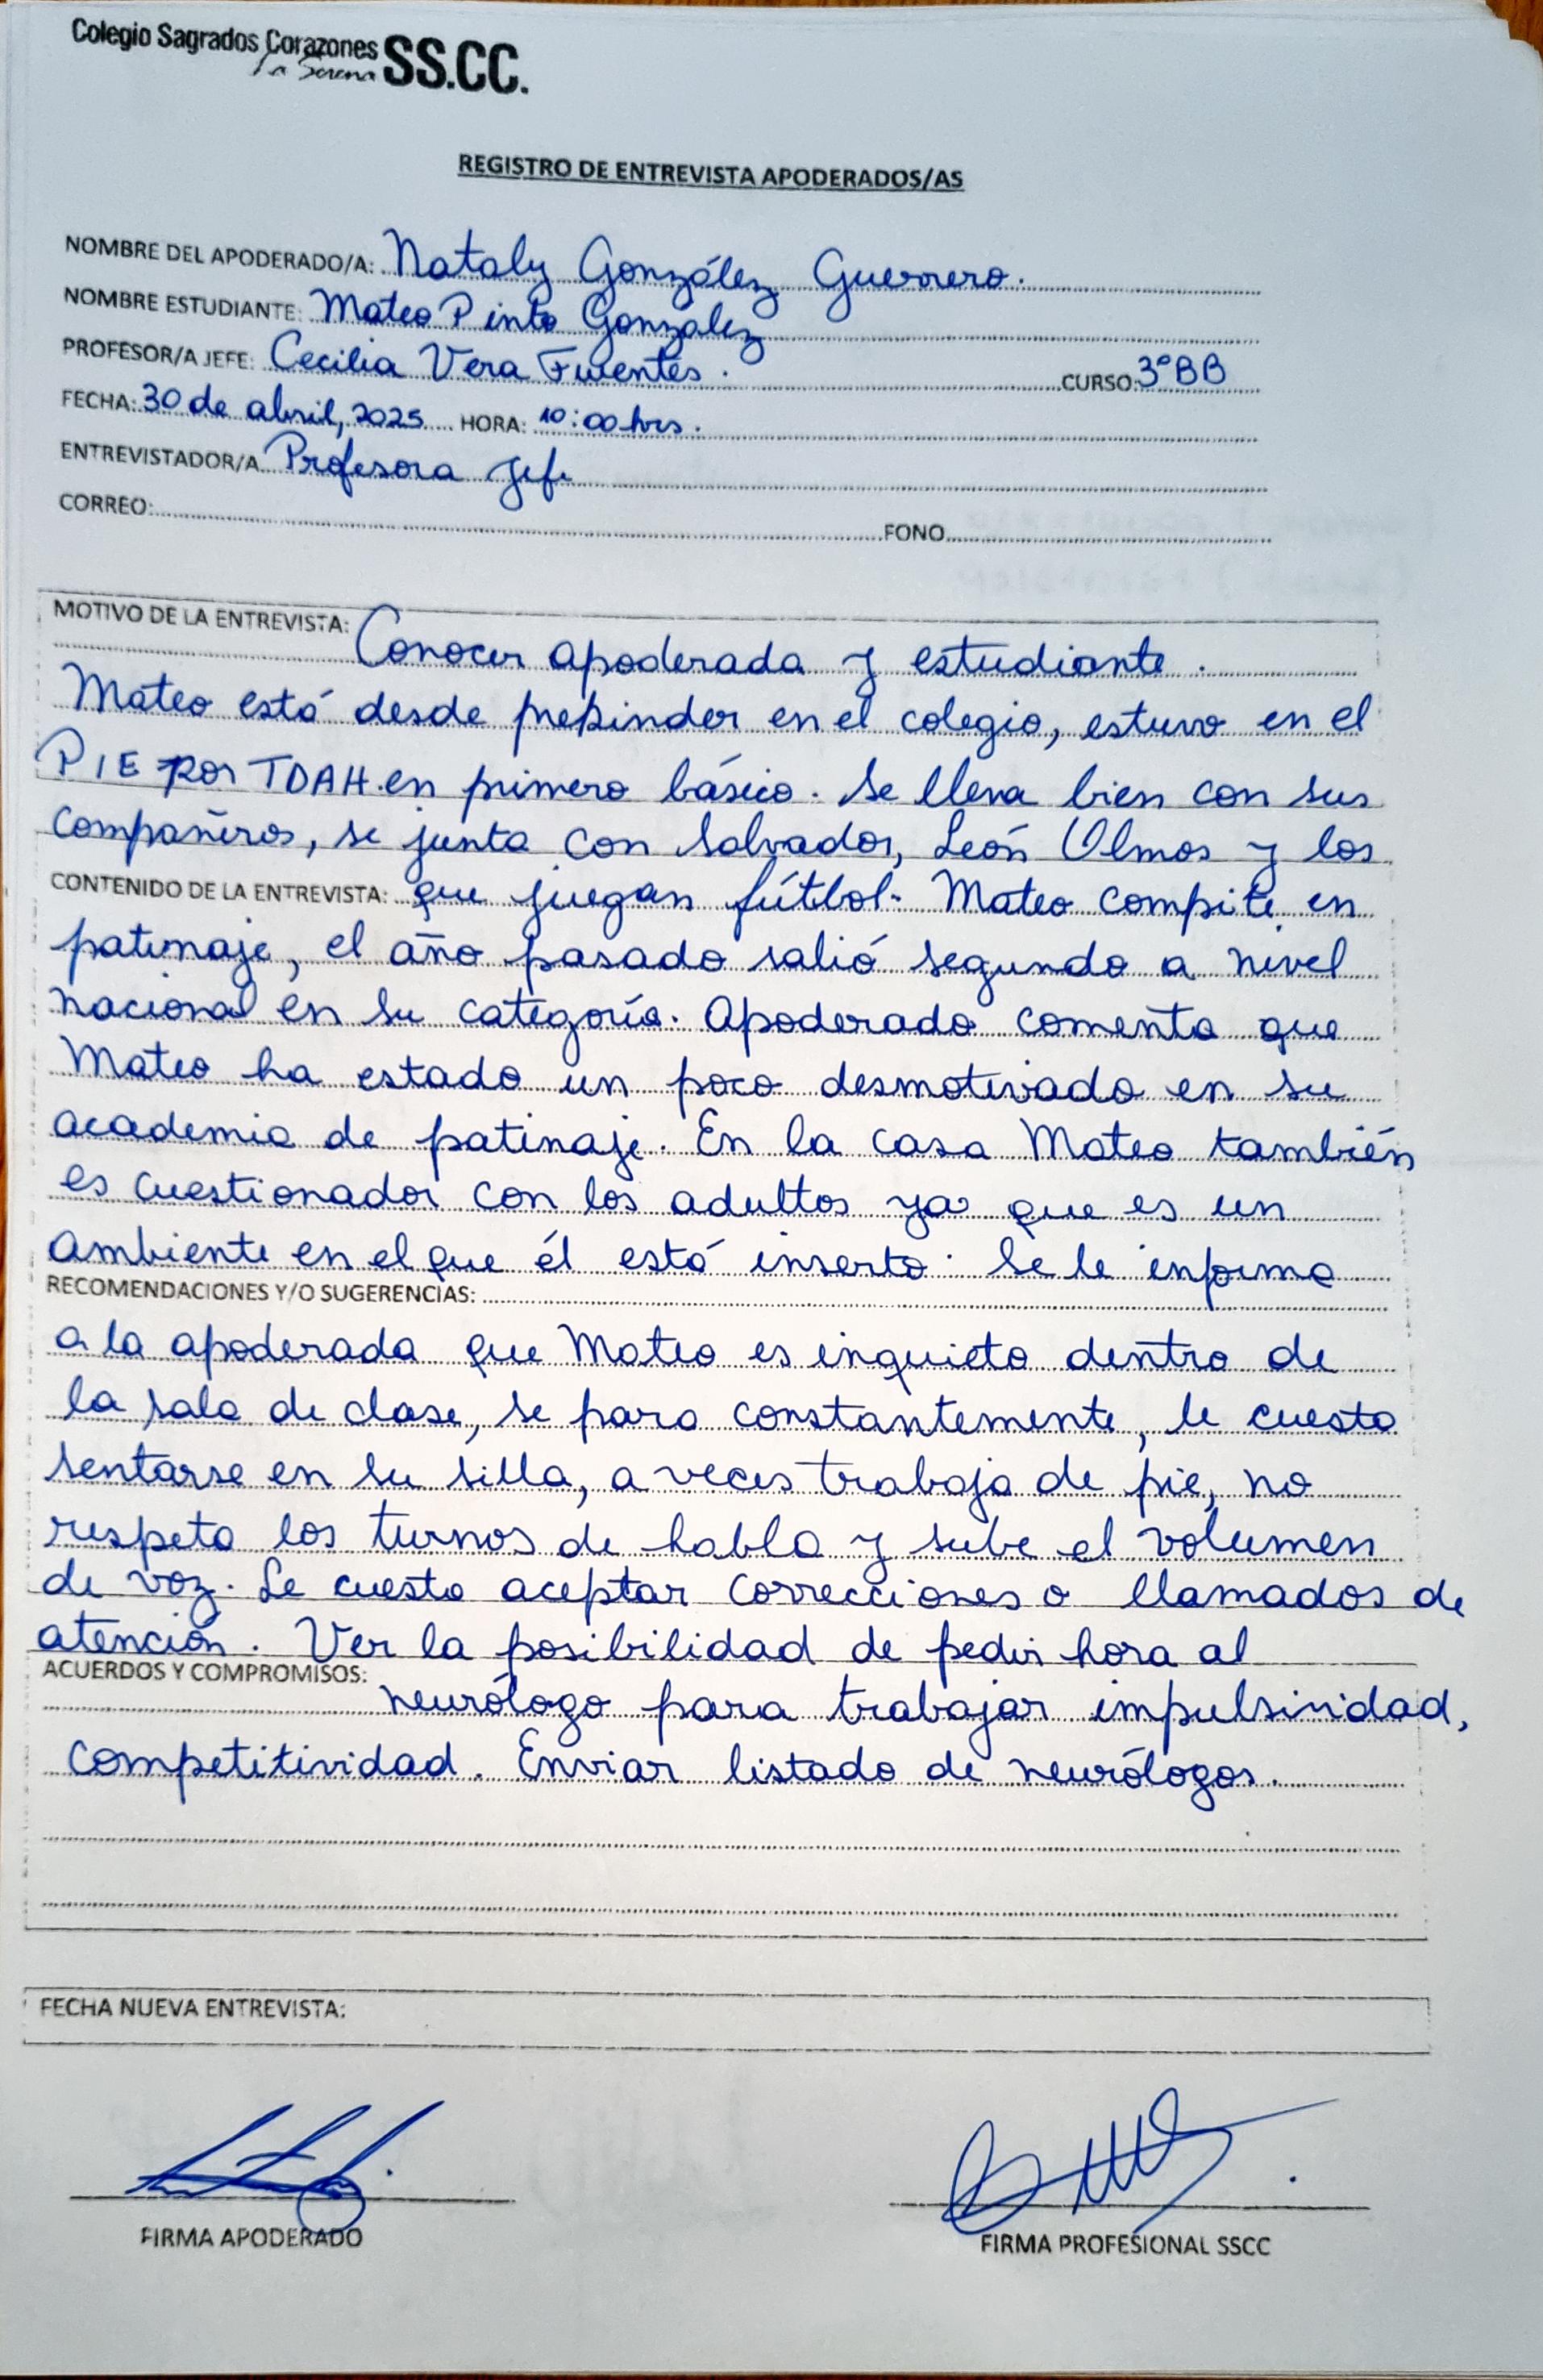 Colegio Sagrados Corazones SS.CC.
La Serena
REGISTRO DE ENTREVISTA APODERADOS/AS
NOMBRE DEL APODERADO/A: Nataly González Guerrero.
NOMBRE ESTUDIANTE: Mateo Pinto Gonzalez
PROFESOR/A JEFE: Cecilia Vera Fuentes. CURSO: 3°BB
FECHA: 30 de abril, 2025 HORA: 10:00 hrs.
ENTREVISTADOR/A Profesora Jefe
CORREO: FONO
MOTIVO DE LA ENTREVISTA: Conocer apoderada y estudiante.
Mateo está desde prekinder en el colegio, estuvo en el
PIE por TDAH en primero básico. Se lleva bien con sus
compañeros, se junta con Salvador, León Olmos y los
CONTENIDO DE LA ENTREVISTA: que juegan fútbol. Mateo compite en
patinaje, el año pasado salió segundo a nivel
nacional en su categoría. Apoderado comenta que
Mateo ha estado un poco desmotivado en su
academia de patinaje. En la casa Mateo también
es cuestionador con los adultos ya que es un
ambiente en el que él está inserto. Se le informa
RECOMENDACIONES Y/O SUGERENCIAS:
a la apoderada que Mateo es inquieto dentro de
la sala de clase, se para constantemente, le cuesta
sentarse en su silla, a veces trabaja de pie, no
respeta los turnos de habla y sube el volumen
de voz. Le cuesta aceptar correcciones o llamados de
atención. Ver la posibilidad de pedir hora al
ACUERDOS Y COMPROMISOS:
neurólogo para trabajar impulsividad,
competitividad. Enviar listado de neurólogos.
FECHA NUEVA ENTREVISTA:
FIRMA APODERADO FIRMA PROFESIONAL SSCC